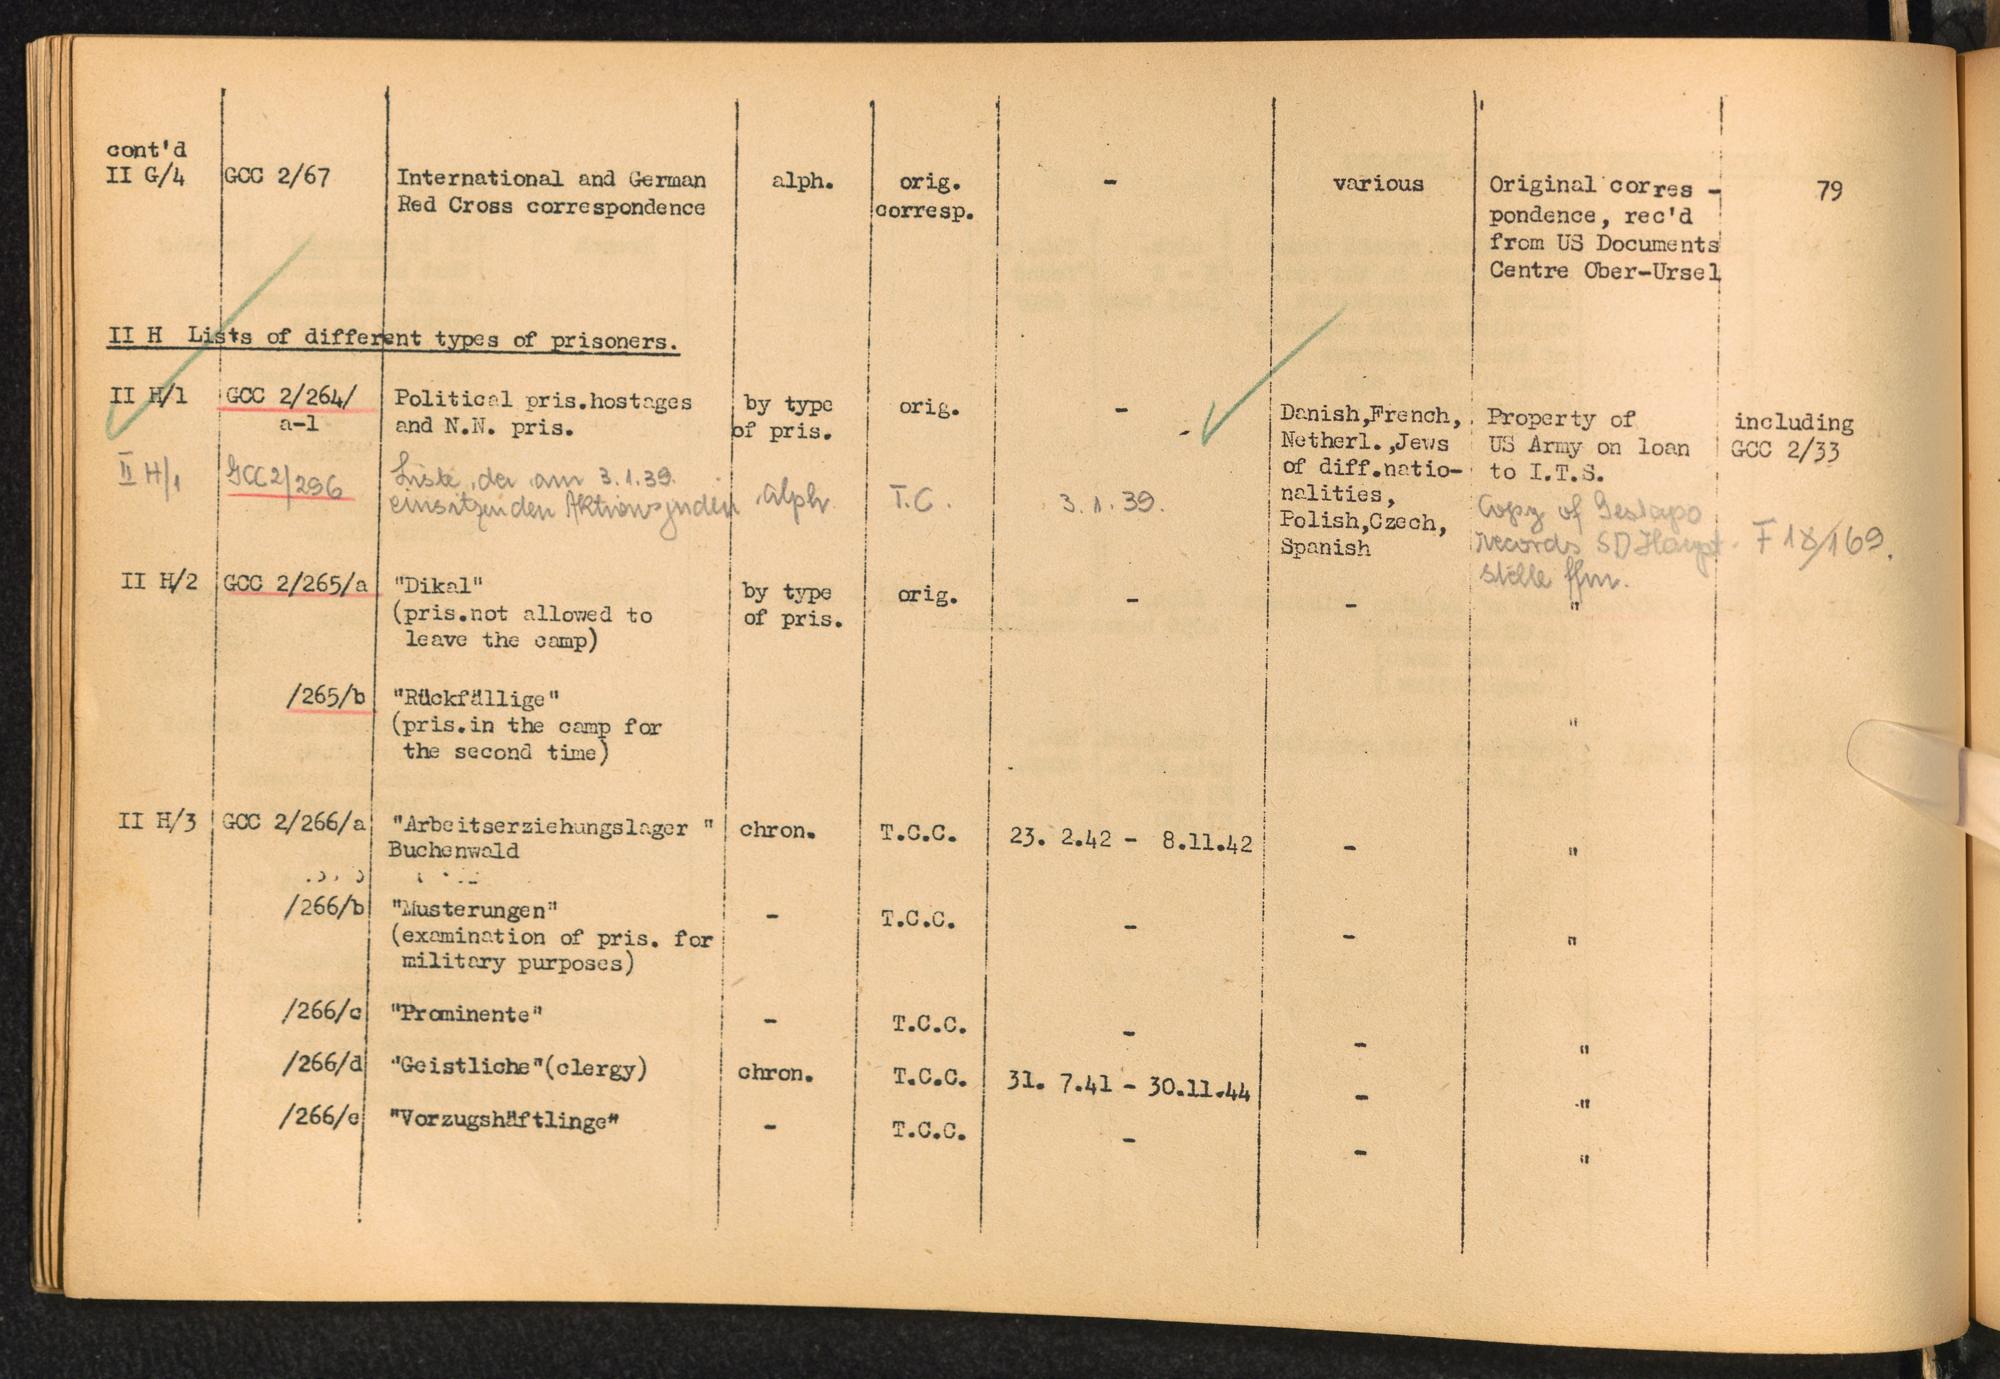 cont'd
II G/4 GCC 2/67 International and German alph. orig. - various Original corres - 79
Red Cross correspondence corresp. pondence, rec'd
from US Documents
Centre Ober-Ursel
II H Lists of different types of prisoners.
II H/1 GCC 2/264/ Political pris.hostages by type orig. - Danish,French, Property of including
a-l and N.N. pris. of pris. Netherl.,Jews US Army on loan GCC 2/33
of diff.natio- to I.T.S.
nalities,
Polish,Czech,
Spanish
II H/1 GCC2/296 Liste der am 3.1.39. alph. T.C. 3.1.39. Copy of Gestapo
einsitzenden Aktionsjuden records SD Haupt- F 18/169.
stelle ffm.
II H/2 GCC 2/265/a "Dikal" by type orig. - - "
(pris.not allowed to of pris.
leave the camp)
/265/b "Rückfällige"
(pris.in the camp for "
the second time)
II H/3 GCC 2/266/a "Arbeitserziehungslager " chron. T.C.C. 23. 2.42 - 8.11.42 - "
Buchenwald
/266/b "Musterungen" - T.C.C. - - "
(examination of pris. for
military purposes)
/266/c "Prominente" - T.C.C. - - "
/266/d "Geistliche"(clergy) chron. T.C.C. 31. 7.41 - 30.11.44 - "
/266/e "Vorzugshäftlinge" - T.C.C. - - "